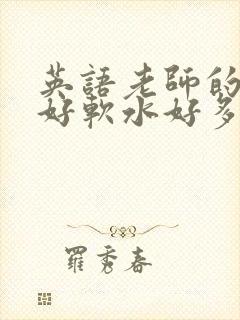 英語老師的
好軟水好多
羅秀春